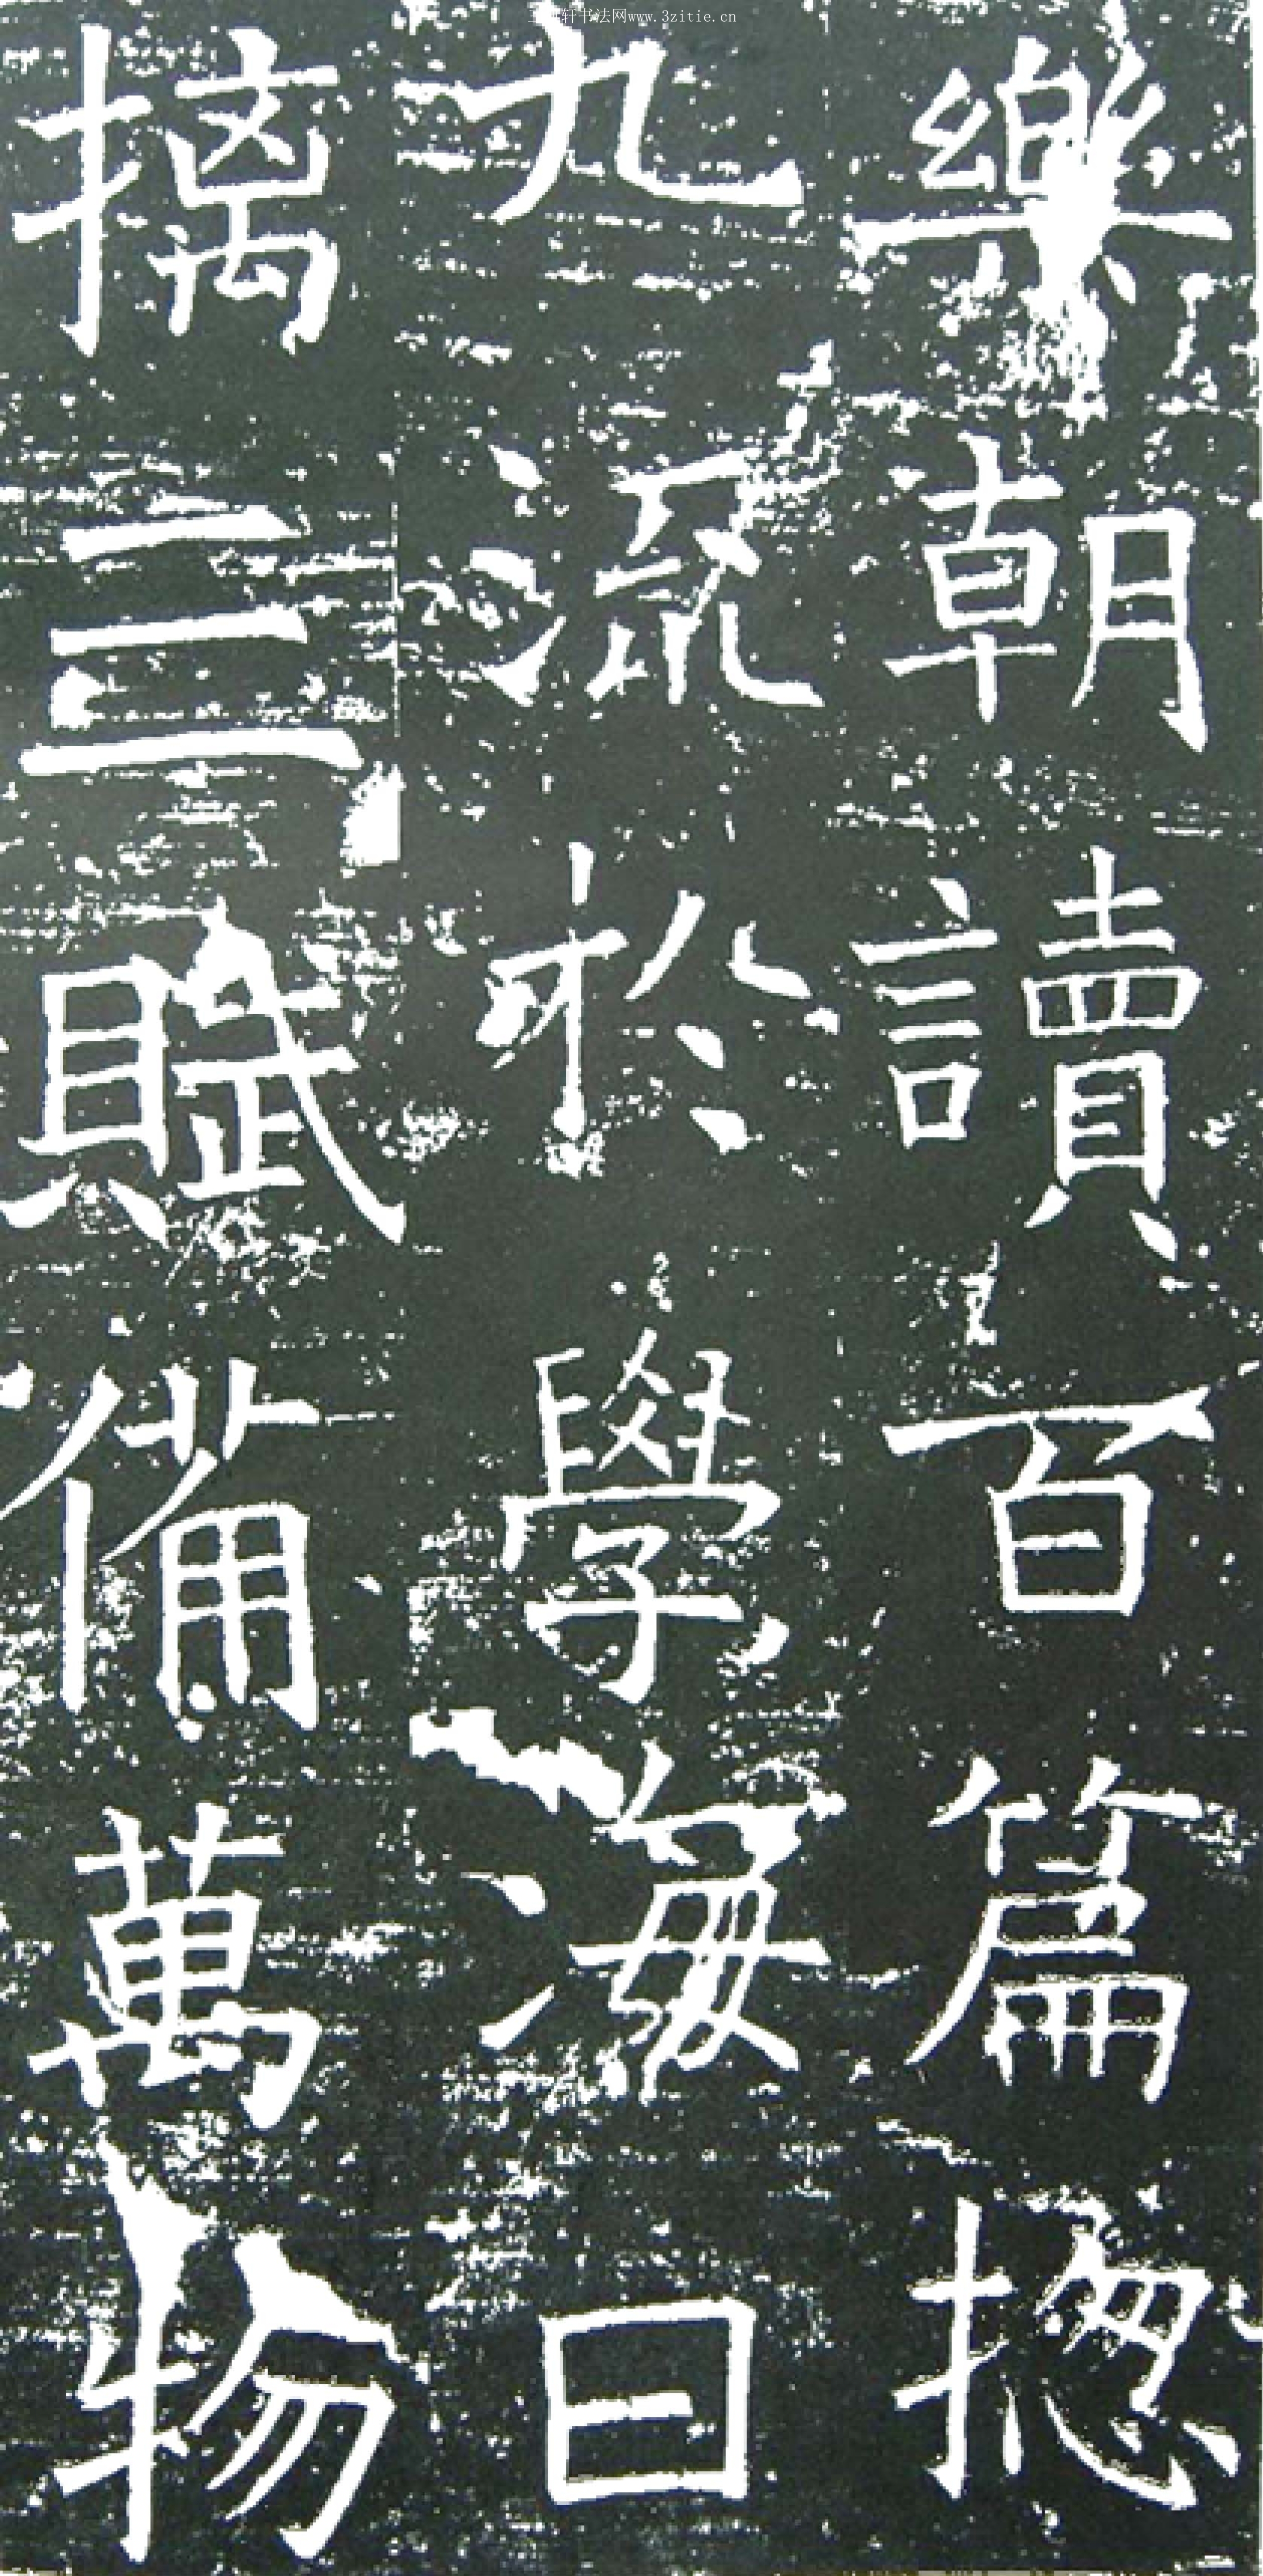 樂朝讀百篇揔
九流於學海日
摛三賦備萬物
三希轩书法网www.3zitie.cn